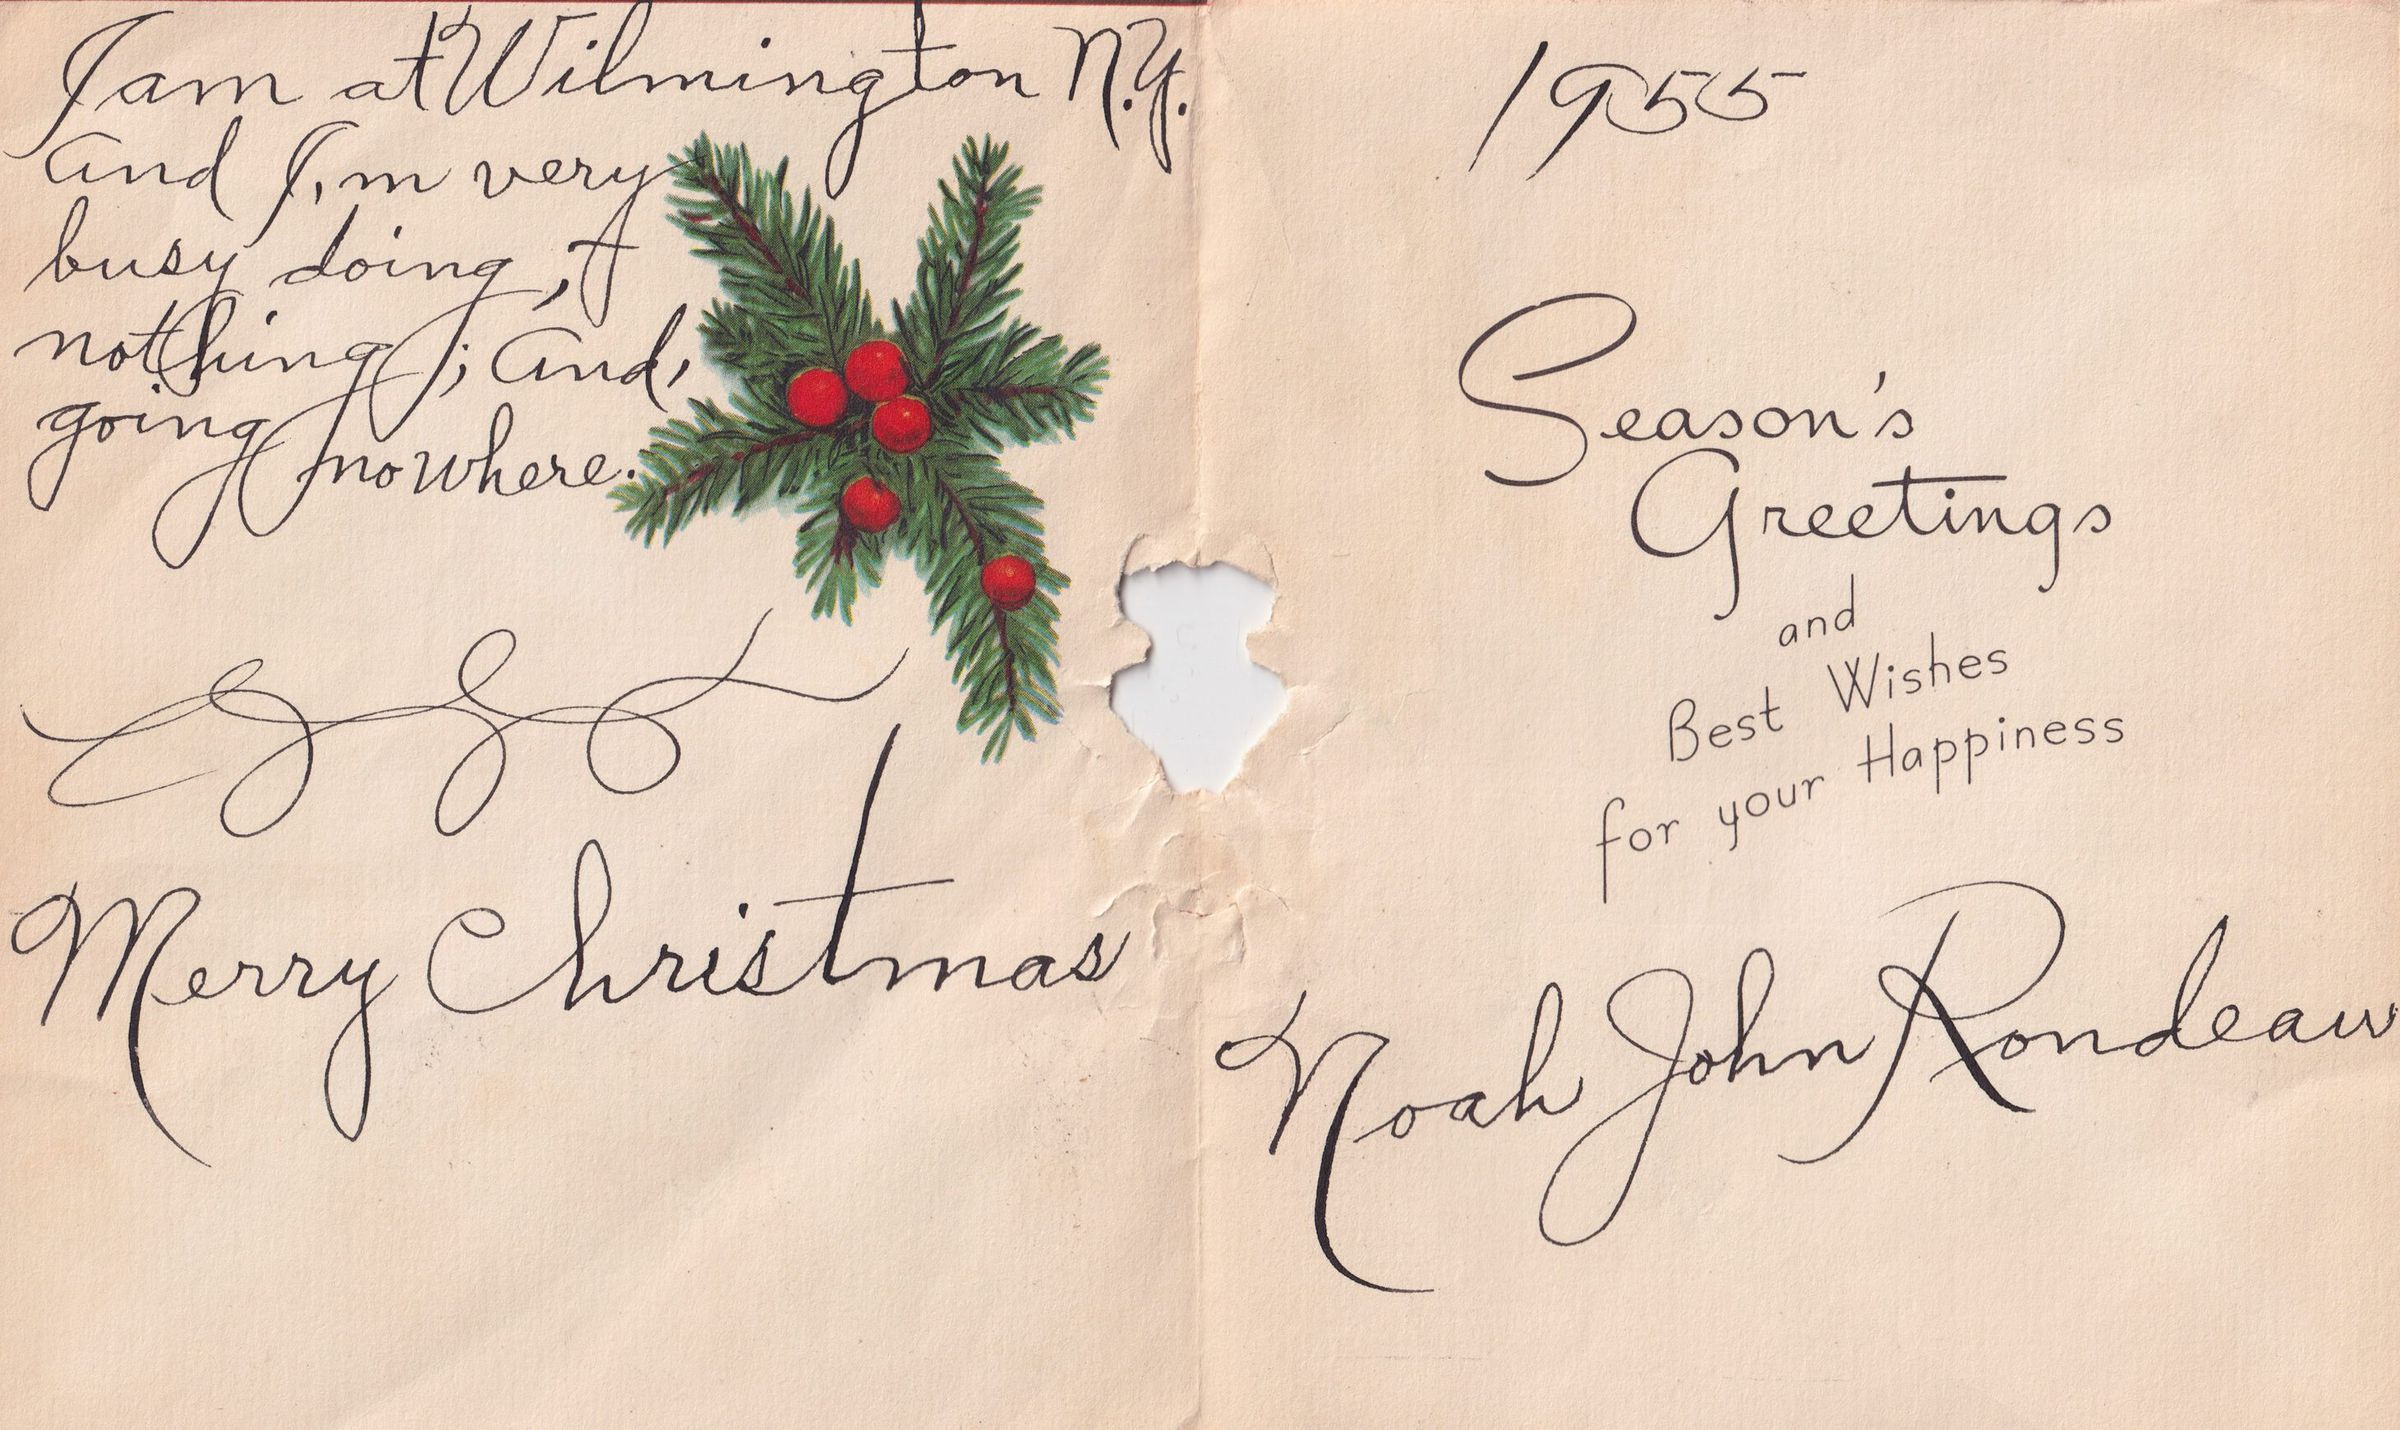 I am at Wilmington N.Y.
and I,m very
busy doing,
nothing; and,
going nowhere.
Merry Christmas
1955
Season's
Greetings
and
Best Wishes
for your Happiness
Noah John Rondeau